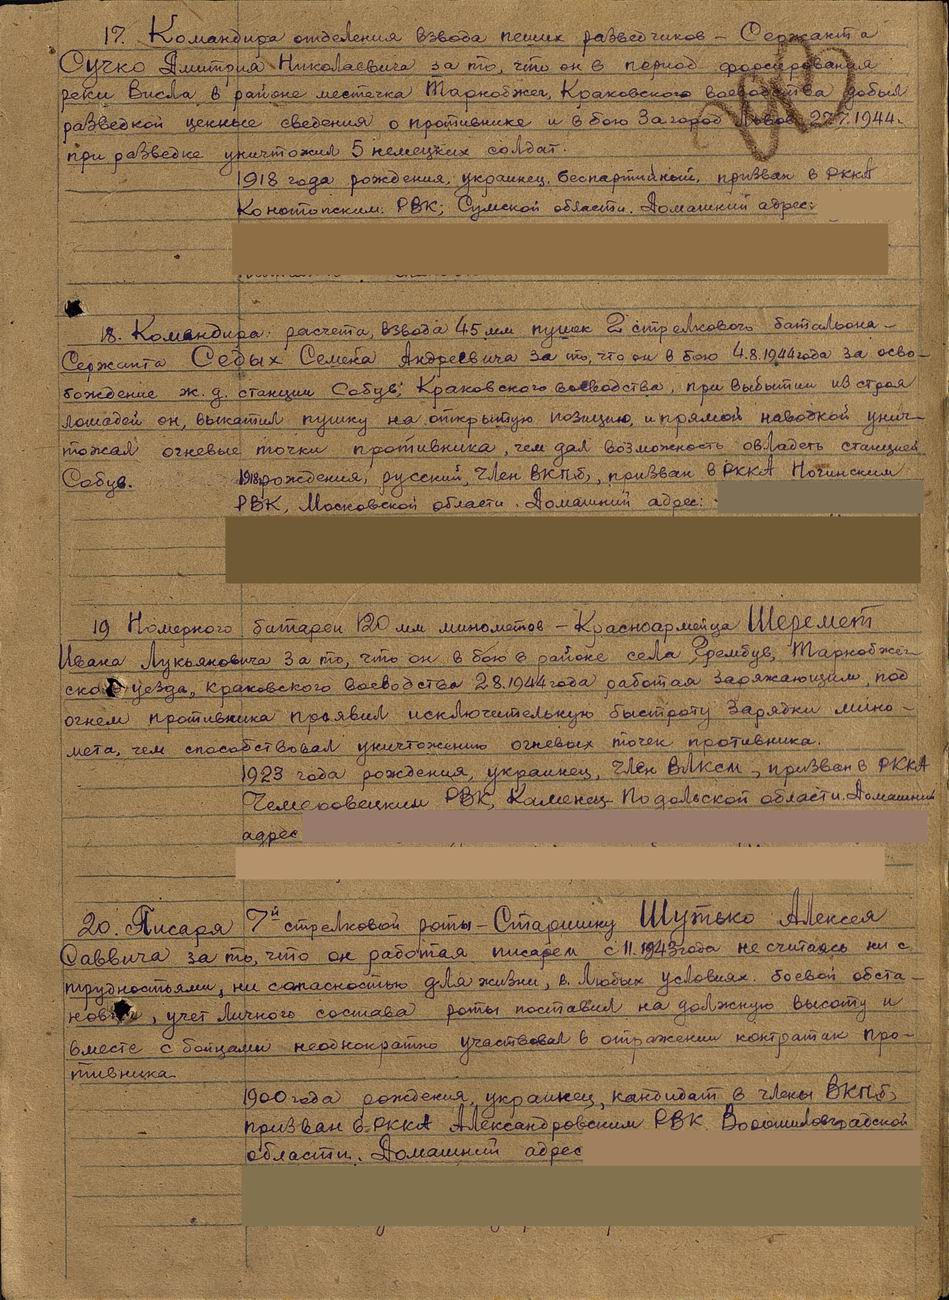 17. Командира отделения взвода пеших разведчиков – Сержанта
Сучко Дмитрия Николаевича за то, что он в период форсирования
реки Висла в районе местечка Тарнобжег, Краковского воеводства добыл
разведкой ценные сведения о противнике и в бою за город Львов 22.7.1944.
при разведке уничтожил 5 немецких солдат.
1918 года рождения, украинец, беспартийный, призван в РККА
Конотопским РВК; Сумской области. Домашний адрес:
18. Командира расчета, взвода 45 мм пушек 2 стрелкового батальона –
Сержанта Седых Семена Андреевича за то, что он в бою 4.8.1944 года за осво-
бождение ж.д. станции Собув; Краковского воеводства, при выбытии из строя
лошадей он, выкатил пушку на открытую позицию, и прямой наводкой унич-
тожал огневые точки противника, чем дал возможность овладеть станцией
Собув.
1918 рождения, русский, член ВКПб, призван в РККА Ногинским
РВК, Московской области. Домашний адрес:
19 Номерного батареи 120 мм минометов – Красноармейца Шеремет
Ивана Лукьяновича за то, что он в бою в районе села Грембув, Тарнобжег-
ского уезда, Краковского воеводства 2.8.1944 года работая заряжающим, под
огнем противника проявил исключительную быстроту зарядки мино-
мета, чем способствовал уничтожению огневых точек противника.
1923 года рождения, украинец, член ВЛКСМ, призван в РККА
Чемеровецким РВК, Каменец-Подольской области. Домашний
адрес
20. Писаря 7й стрелковой роты – Старшину Шутько Алексея
Саввича за то, что он работая писарем с 11.1943 года не считаясь ни с
трудностями, ни сопасностью для жизни, в любых условиях боевой обста-
новки, учет личного состава роты поставил на должную высоту и
вместе с бойцами неоднократно участвовал в отражении контратак про-
тивника.
1900 года рождения, украинец, кандидат в члены ВКПб,
призван в РККА Александровским РВК Ворошиловградской
области. Домашний адрес